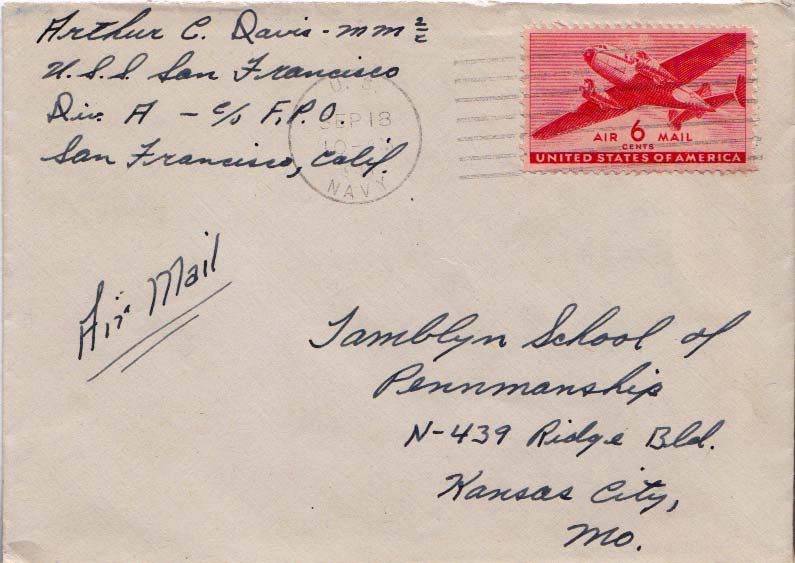 Arthur C. Davis - mm 2/c
U.S.S. San Francisco
Div. A - c/o F.P.O.
San Francisco, Calif.
U.S.
SEP 18
NAVY
AIR 6 MAIL
CENTS
UNITED STATES OF AMERICA
Air Mail
Tamblyn School of
Pennmanship
N-439 Ridge Bld.
Kansas City,
Mo.